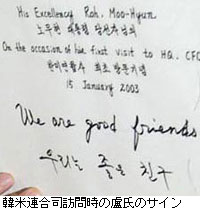 His Excellency Roh, Moo-Hyun
노무현 대통령 당선자님의
On the occasion of his first visit to HQ. CFC
한미연합사 최초 방문기념
15 January 2003
We are good friends
우리는 좋은 친구
韓米連合司訪問時の盧氏のサイン